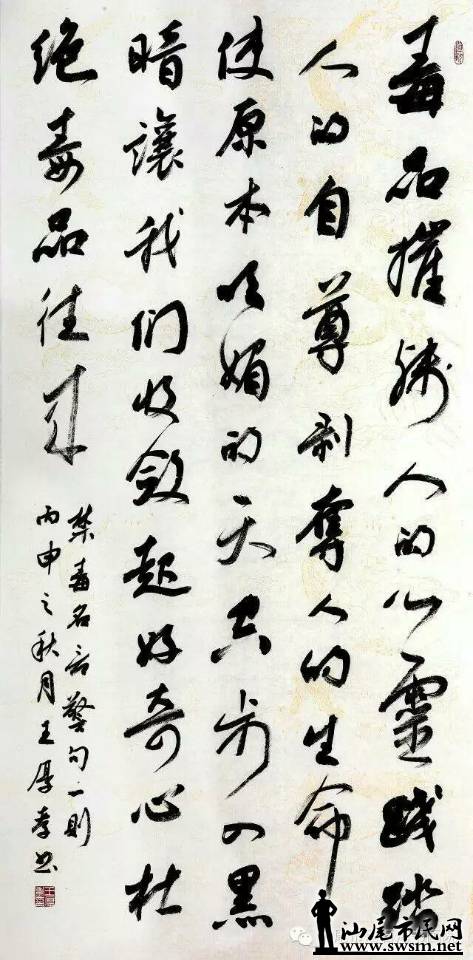 毒品摧残人的心靈踐踏
人的自尊剥奪人的生命
使原本明媚的天空步入黑
暗讓我們收斂起好奇心杜
绝毒品往来
禁毒名言警句一則
丙申之秋月王厚孝书
汕尾市民网
www.swsm.net